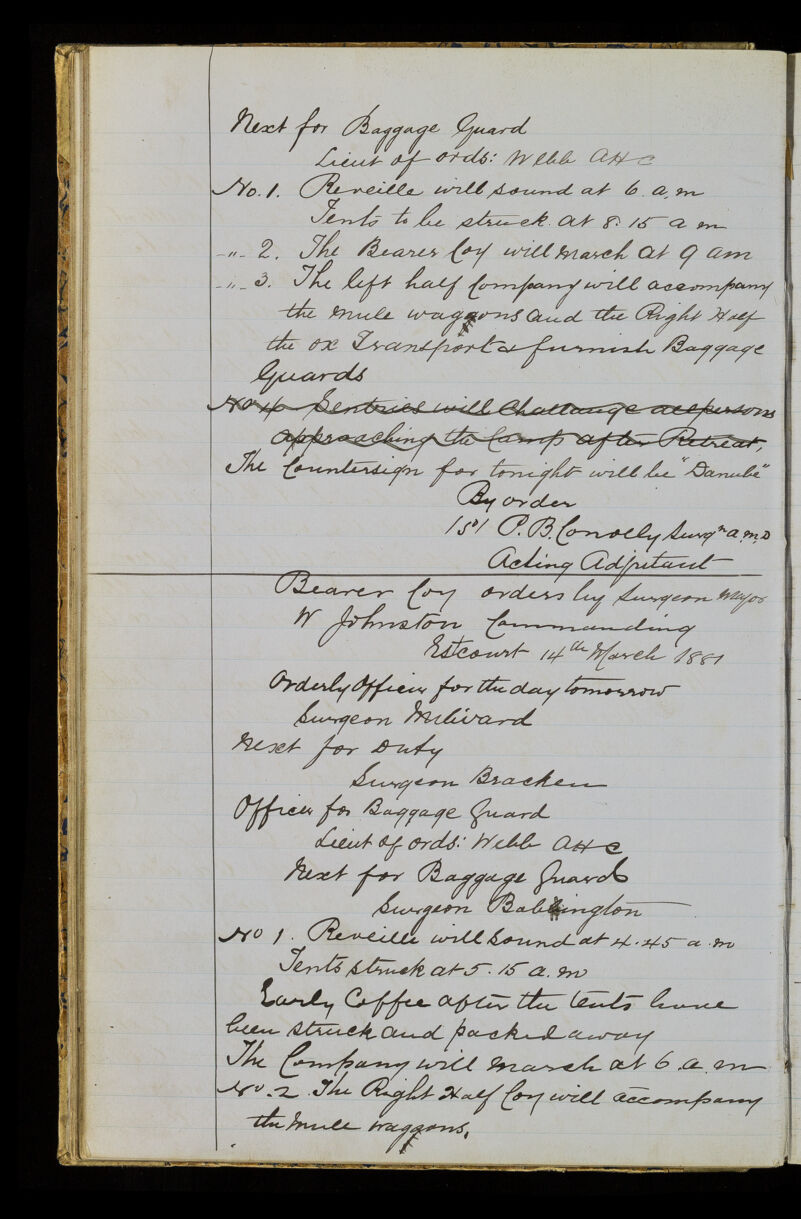 Next for Baggage Guard
Lieut of ords: Webb AHC
No. 1. Reveille will sound at 6. a.m
Tents to be struck at 8.15 a m
-"- 2. The Bearer Coy will march at 9 am
-"- 3. The left half Company will accompany
the mule waggons and the Right Half
the ox Transport & furnish Baggage
Guards
No 4 Sentries will Challange all persons
approaching the Camp after Retreat,
The Countersign for tonight will be "Danube"
By order
/sd/ P. B. Conolly Surgn a.m.D
Acting Adjutant
Bearer Coy orders by Surgeon Major
W Johnston Commanding
Estcourt 14th March 1881
Orderly Officer for the day tomorrow
Surgeon Milward
Next for Duty
Surgeon Bracken
Officer for Baggage Guard
Lieut of ords: Webb AHC
Next for Baggage Guard
Surgeon Babington
No 1. Reveille will sound at 4.45 a.m
Tents struck at 5.15 a.m
Early Coffee after the tents have
been struck and packed away
The Company will march at 6 a.m
No. 2 The Right Half Coy will accompany
the mule waggons.